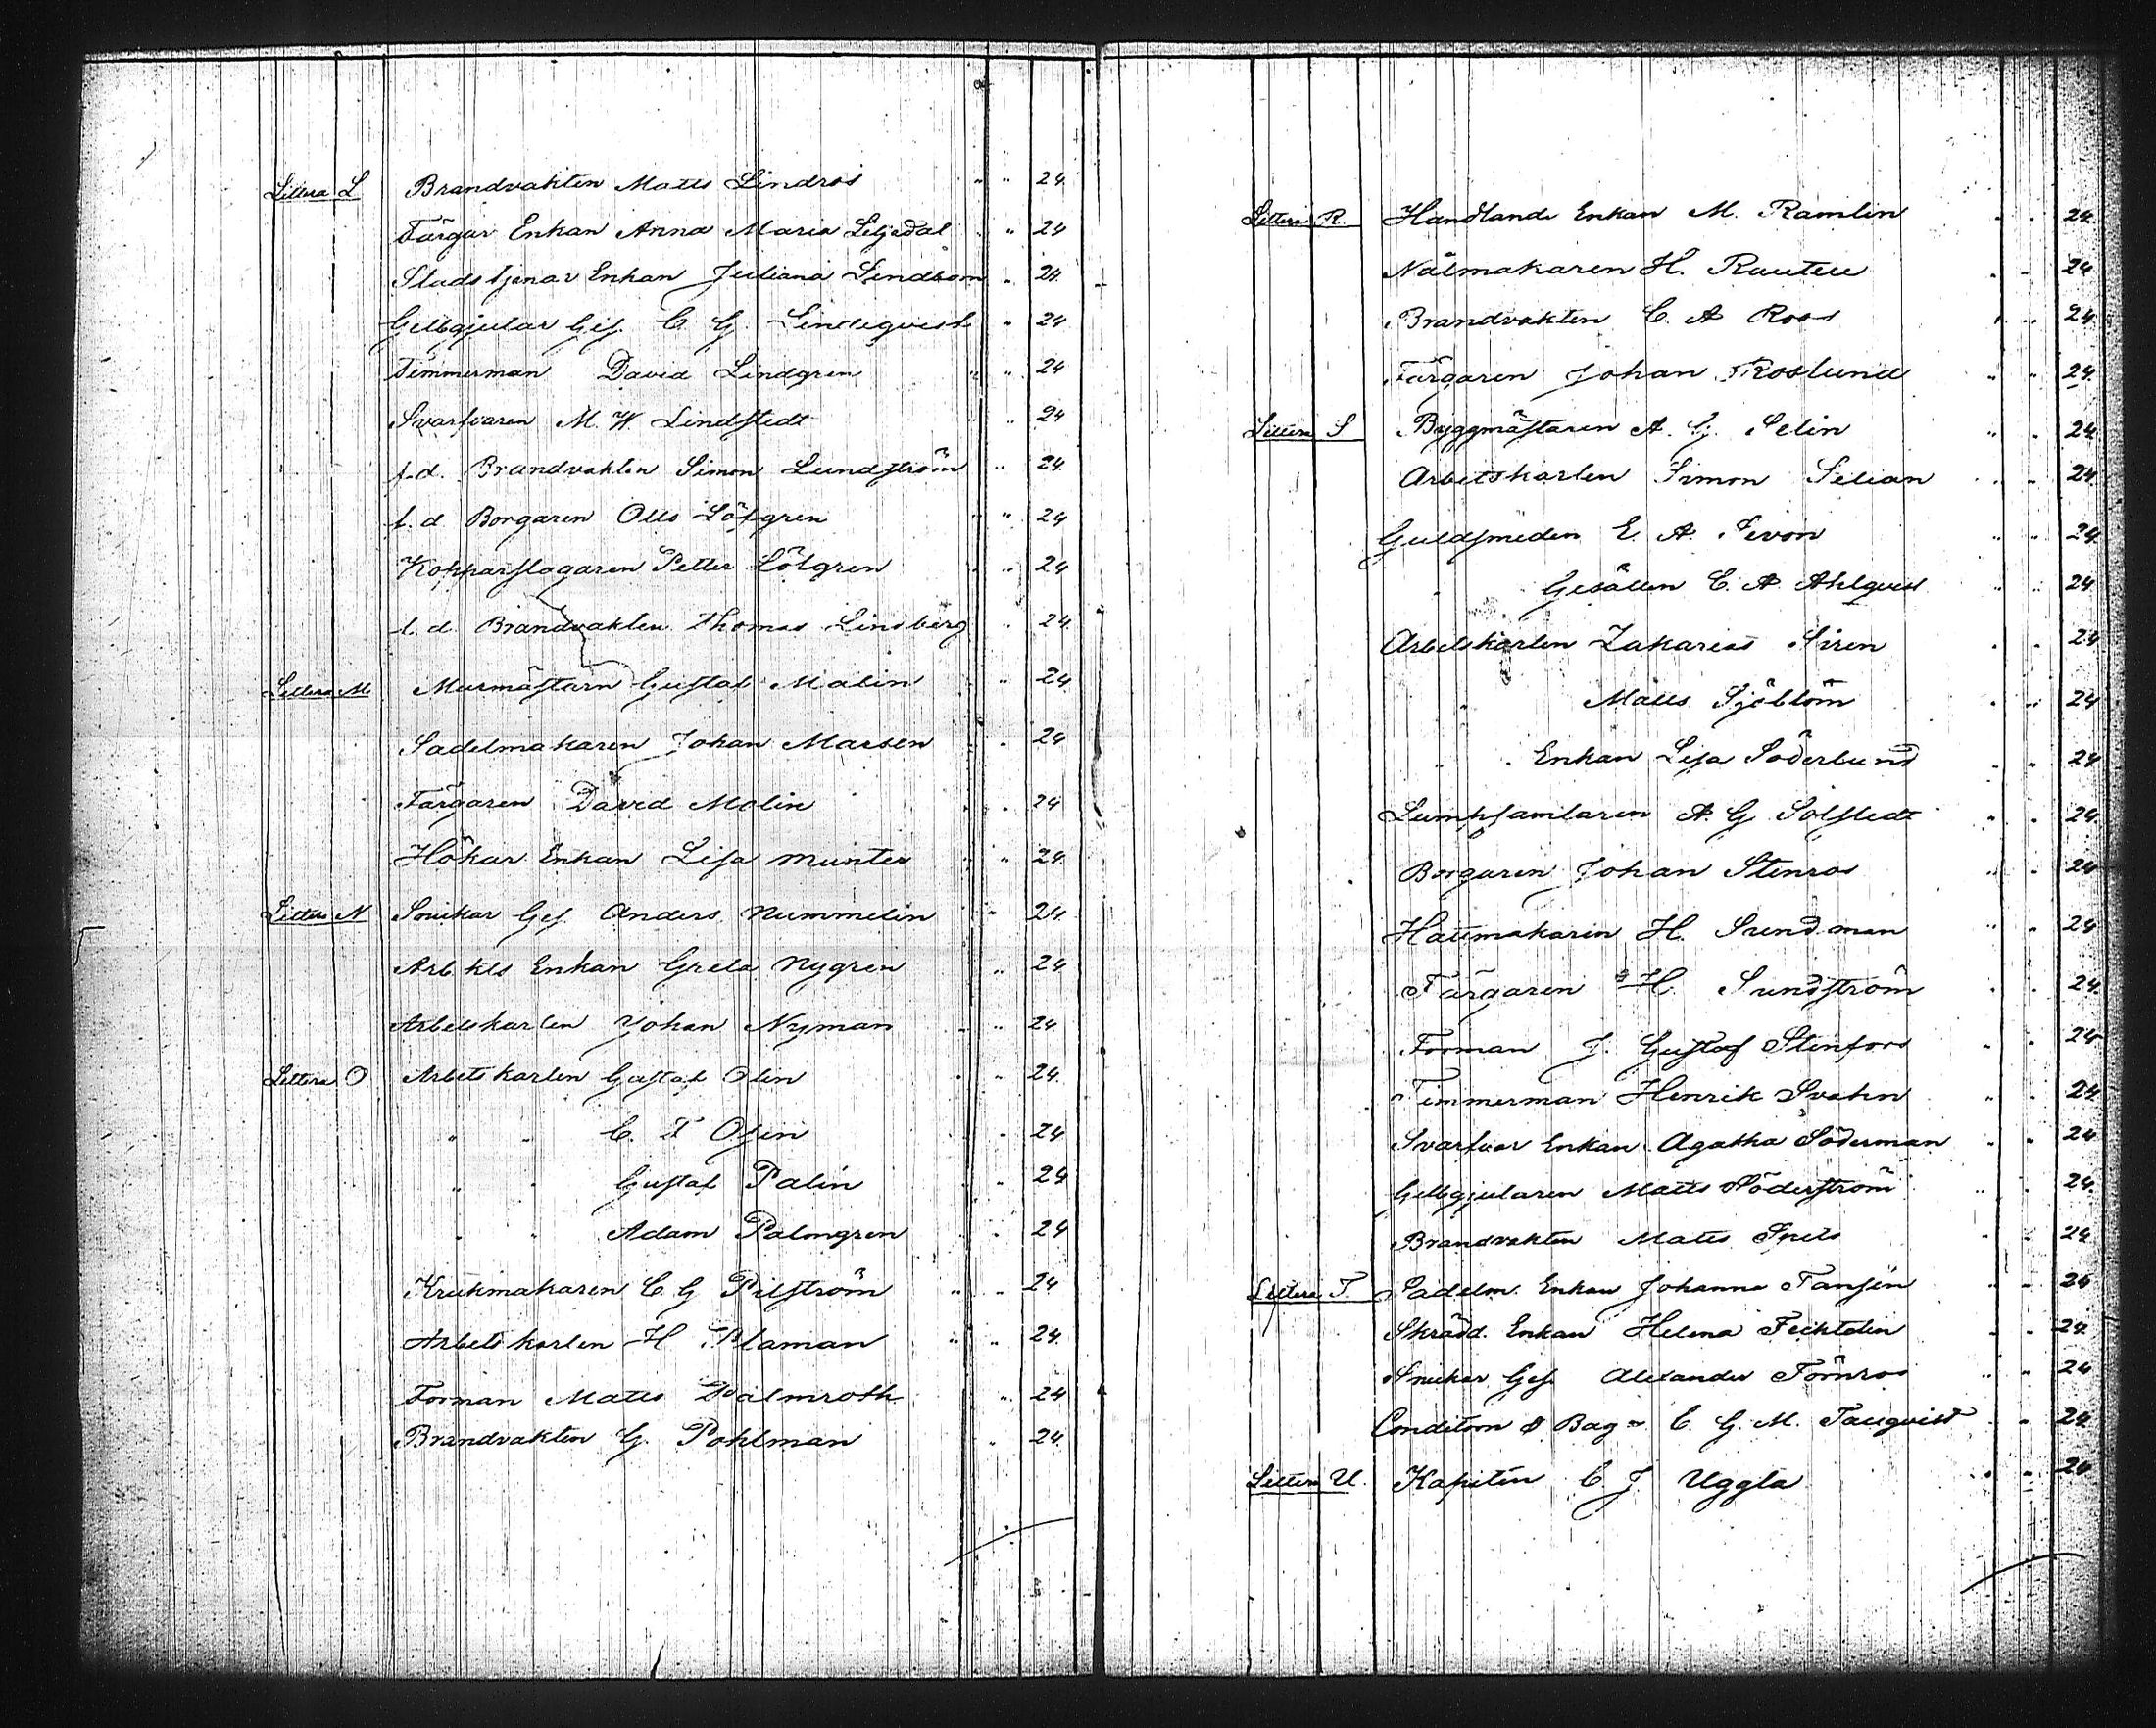 Littera L Brandvakten Matts Lindros " " 24.
Färgar Enkan Anna Maria Liljedal " " 24
Stadstjenar Enkan Juliana Lindbom " 24.
Gelbgjutar Ges. C G. Lindeqvist " 24
Timmerman David Lindgren " " 24
Svarfvaren M. W. Lindstedt " 24
f.d. Brandvakten Simon Lundström " 24.
f.d Borgaren Otto Löfgren " " 24
Kopparslagaren Petter Löfgren " " 24
f.d. Brandvakten Thomas Lindberg " 24.
Littera M. Murmästarn Gustaf Malin " " 24.
Sadelmakaren Johan Marsen " " 24
Färgaren David Molin " " 24
Hökar Enkan Lisa Munter " " 24.
Littera N Snickar Ges. Anders Nummelin " " 24.
Arb. kls Enkan Greta Nygren " 24
Arbetskarlen Johan Nyman " " 24.
Littera O Arbetskarlen Gustaf Olin " " 24.
" " C. F Ojin " " 24
" " Gustaf Palin " " 24
" " Adam Palmgren " 24
Krukmakaren C. G Pilström " " 24
Arbetskarlen H. Plaman " " 24.
Forman Matts Palmroth " 24
Brandvakten G. Pohlman " 24.
Littera R. Handlande Enkan M. Ramlin " " 24.
Nålmakaren H. Rautell " " 24
Brandvakten C. A Roos " " 24
Färgaren Johan Roslund " " 24.
Littera S Byggmästaren A. G. Selin " " 24
Arbetskarlen Simon Selian " " 24
Guldsmeden E. A. Sevon " " 24
" Gesällen C. A. Ahlqvist " " 24
Arbetskarlen Zakarias Siren " " 24
" Matts Sjöblom " " 24
" " Enkan Lisa Söderlund " " 24
Lumpsamlaren A. G Solstedt " " 24
Borgaren Johan Stenros " " 24
Hattmakarin H. Sundman " " 24
Färgaren H. Sundström " " 24.
Forman J. Gustaf Stenfors " " 24
Timmerman Henrik Svahn " " 24
Svarfvar Enkan Agatha Söderman " " 24
Gelbgjutaren Matts Söderström " " 24.
Brandvakten Matts Spels " " 24
Littera T Sadelm. Enkan Johanna Tansén " " 24
Skrädd. Enkan Helena Techtelin " " 24
Snickar Ges Alexander Törnros " " 24
Conditorn & Bag C. G. M. Tanqvist " " 24
Littera U. Kapitén C. J. Uggla " " 24